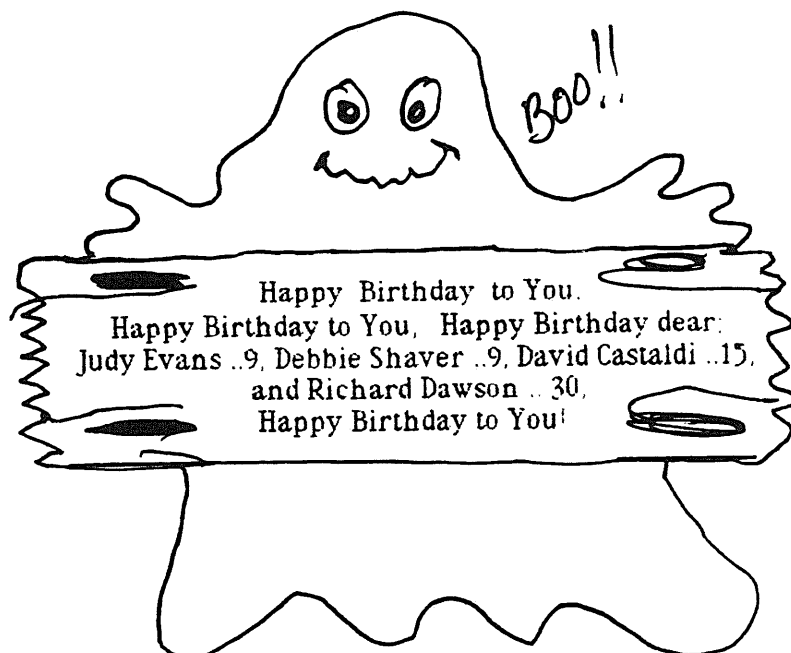 BOO!!
Happy Birthday to You.
Happy Birthday to You, Happy Birthday dear:
Judy Evans ..9, Debbie Shaver ..9, David Castaldi ..15,
and Richard Dawson .. 30,
Happy Birthday to You!